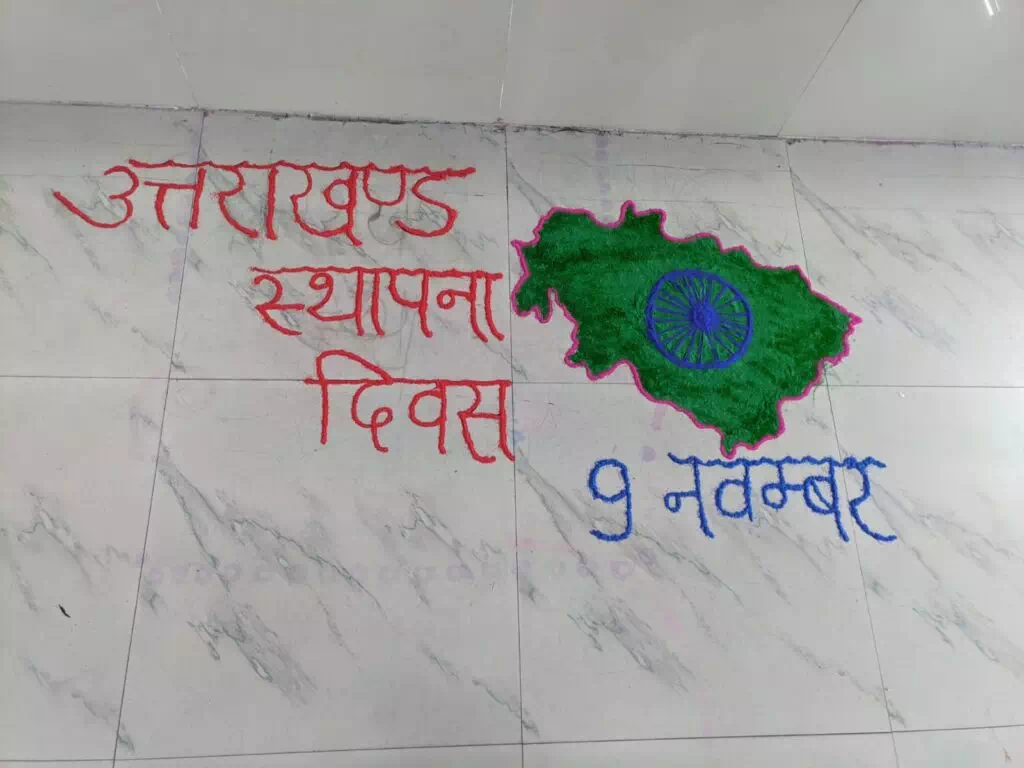 उत्तराखण्ड
स्थापना
दिवस
9 नवम्बर